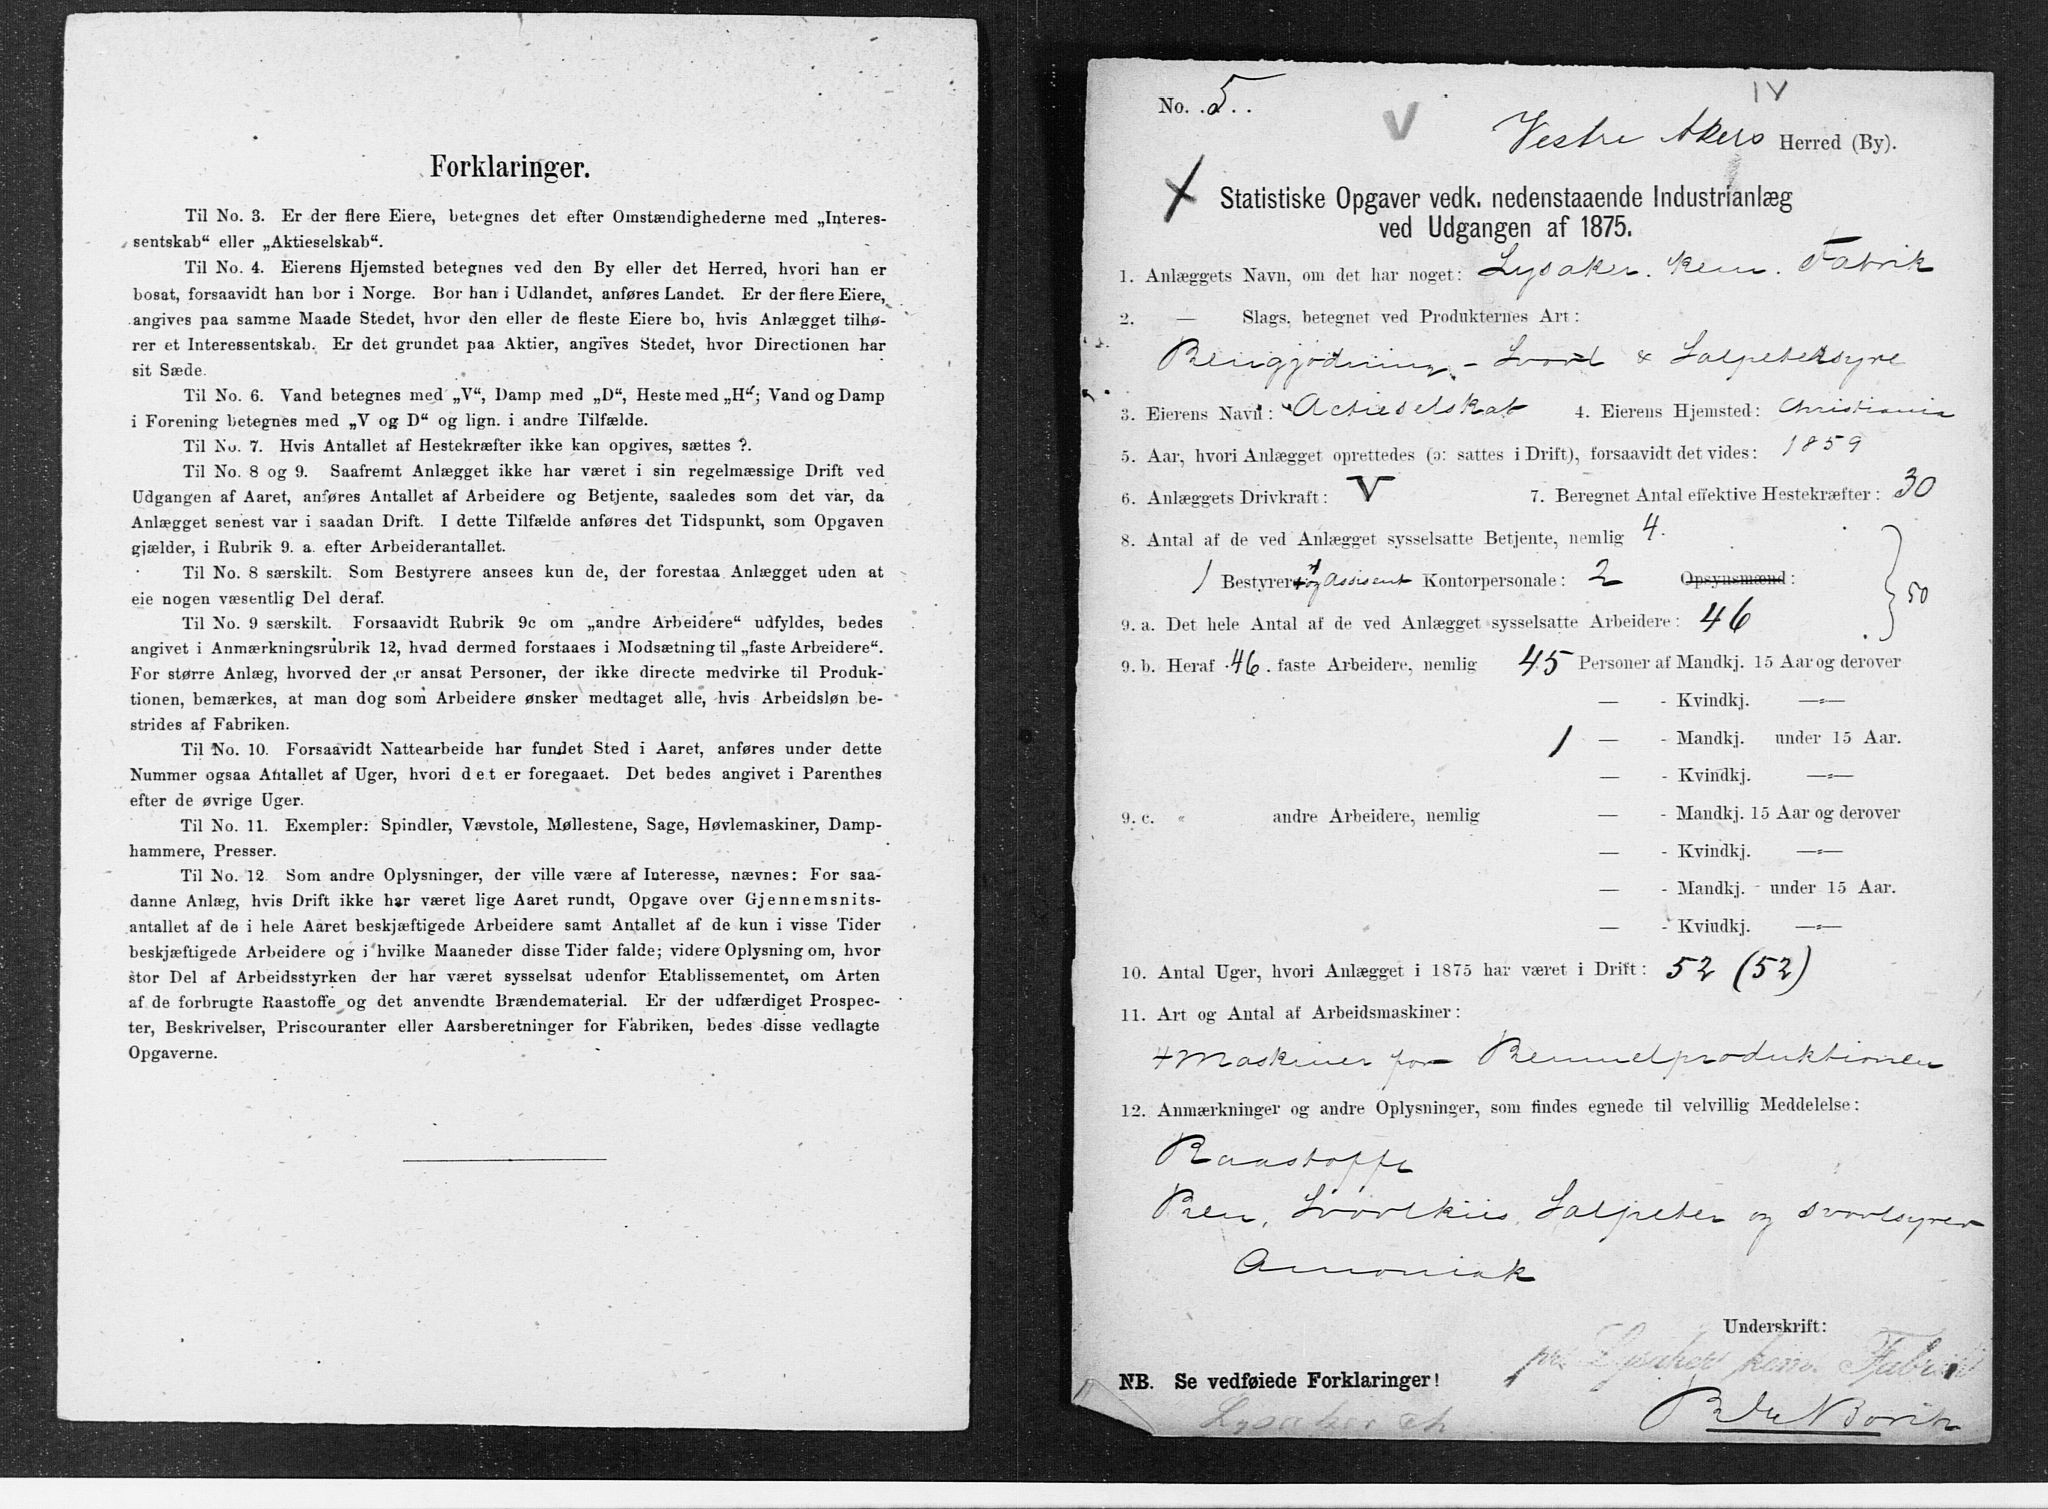 Forklaringer.
Til No. 3. Er der flere Eiere, betegnes det efter Omstændighederne med „Interes-
sentskab“ eller „Aktieselskab“.
Til No. 4. Eierens Hjemsted betegnes ved den By eller det Herred, hvori han er
bosat, forsaavidt han bor i Norge. Bor han i Udlandet, anføres Landet. Er der flere Eiere,
angives paa samme Maade Stedet, hvor den eller de fleste Eiere bo, hvis Anlægget tilhø-
rer et Interessentskab. Er det grundet paa Aktier, angives Stedet, hvor Directionen har
sit Sæde.
Til No. 6. Vand betegnes med „V“, Damp med „D“, Heste med „H“; Vand og Damp
i Forening betegnes med „V og D“ og lign. i andre Tilfælde.
Til No. 7. Hvis Antallet af Hestekræfter ikke kan opgives, sættes ?.
Til No. 8 og 9. Saafremt Anlægget ikke har været i sin regelmæssige Drift ved
Udgangen af Aaret, anføres Antallet af Arbeidere og Betjente, saaledes som det var, da
Anlægget senest var i saadan Drift. I dette Tilfælde anføres det Tidspunkt, som Opgaven
gjælder, i Rubrik 9. a. efter Arbeiderantallet.
Til No. 8 særskilt. Som Bestyrere ansees kun de, der forestaa Anlægget uden at
eie nogen væsentlig Del deraf.
Til No. 9 særskilt. Forsaavidt Rubrik 9c om „andre Arbeidere“ udfyldes, bedes
angivet i Anmærkningsrubrik 12, hvad dermed forstaaes i Modsætning til „faste Arbeidere“.
For større Anlæg, hvorved der er ansat Personer, der ikke directe medvirke til Produk-
tionen, bemærkes, at man dog som Arbeidere ønsker medtaget alle, hvis Arbeidsløn be-
strides af Fabriken.
Til No. 10. Forsaavidt Nattearbeide har fundet Sted i Aaret, anføres under dette
Nummer ogsaa Antallet af Uger, hvori det er foregaaet. Det bedes angivet i Parenthes
efter de øvrige Uger.
Til No. 11. Exempler: Spindler, Vævstole, Møllestene, Sage, Høvlemaskiner, Damp-
hammere, Presser.
Til No. 12. Som andre Oplysninger, der ville være af Interesse, nævnes: For saa-
danne Anlæg, hvis Drift ikke har været lige Aaret rundt, Opgave over Gjennemsnits-
antallet af de i hele Aaret beskjæftigede Arbeidere samt Antallet af de kun i visse Tider
beskjæftigede Arbeidere og i hvilke Maaneder disse Tider falde; videre Oplysning om, hvor
stor Del af Arbeidsstyrken der har været sysselsat udenfor Etablissementet, om Arten
af de forbrugte Raastoffe og det anvendte Brændemateriál. Er der udfærdiget Prospec-
ter, Beskrivelser, Priscouranter eller Aarsberetninger for Fabriken, bedes disse vedlagte
Opgaverne.
IV
No. 5
V
Vestre Akers Herred (By).
Statistiske Opgaver vedk. nedenstaaende Industrianlæg
ved Udgangen af 1875.
1. Anlæggets Navn, om det har noget: Lysaker kem. Fabrik
2. — Slags, betegnet ved Produkternes Art:
Bengjødning - Svovl & Salpetersyre
3. Eierens Navn: Actieselskab 4. Eierens Hjemsted: Christiania
5. Aar, hvori Anlægget oprettedes (ɔ: sattes i Drift), forsaavidt det vides: 1859
6. Anlæggets Drivkraft: V 7. Beregnet Antal effektive Hestekræfter: 30
8. Antal af de ved Anlægget sysselsatte Betjente, nemlig 4.
1 Bestyrer og 1 Assisent Kontorpersonale: 2 Opsynsmænd:
50
9. a. Det hele Antal af de ved Anlægget sysselsatte Arbeidere: 46
9. b. Heraf 46. faste Arbeidere, nemlig 45 Personer af Mandkj. 15 Aar og derover
— - Kvindkj. —„—
1 — - Mandkj. under 15 Aar.
— - Kvindkj. —„—
9. c. „ andre Arbeidere, nemlig — - Mandkj. 15 Aar og derover
— - Kvindkj. —„—
— - Mandkj. - under 15 Aar.
— - Kvindkj. —„—
10. Antal Uger, hvori Anlægget i 1875 har været i Drift: 52 (52)
11. Art og Antal af Arbeidsmaskiner:
4 Maskiner for Benmelproduktionen
12. Anmærkninger og andre Oplysninger, som findes egnede til velvillig Meddelelse:
Raastoffe
Ben, Svovlkiis, Salpeter og svovlsyrer
Amoniak
Underskrift:
pr. Lysaker kem. Fabrik
NB. Se vedføiede Forklaringer!
Lysaker ch